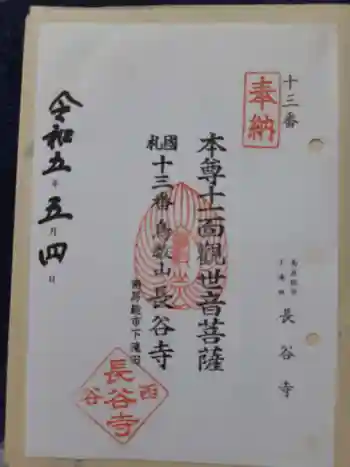 十三番
奉納
長谷寺
本尊十一面觀世音菩薩
國札十三番鳥歌山長谷寺
南房総市下滝田
令和五年五月四日
西谷
長谷寺